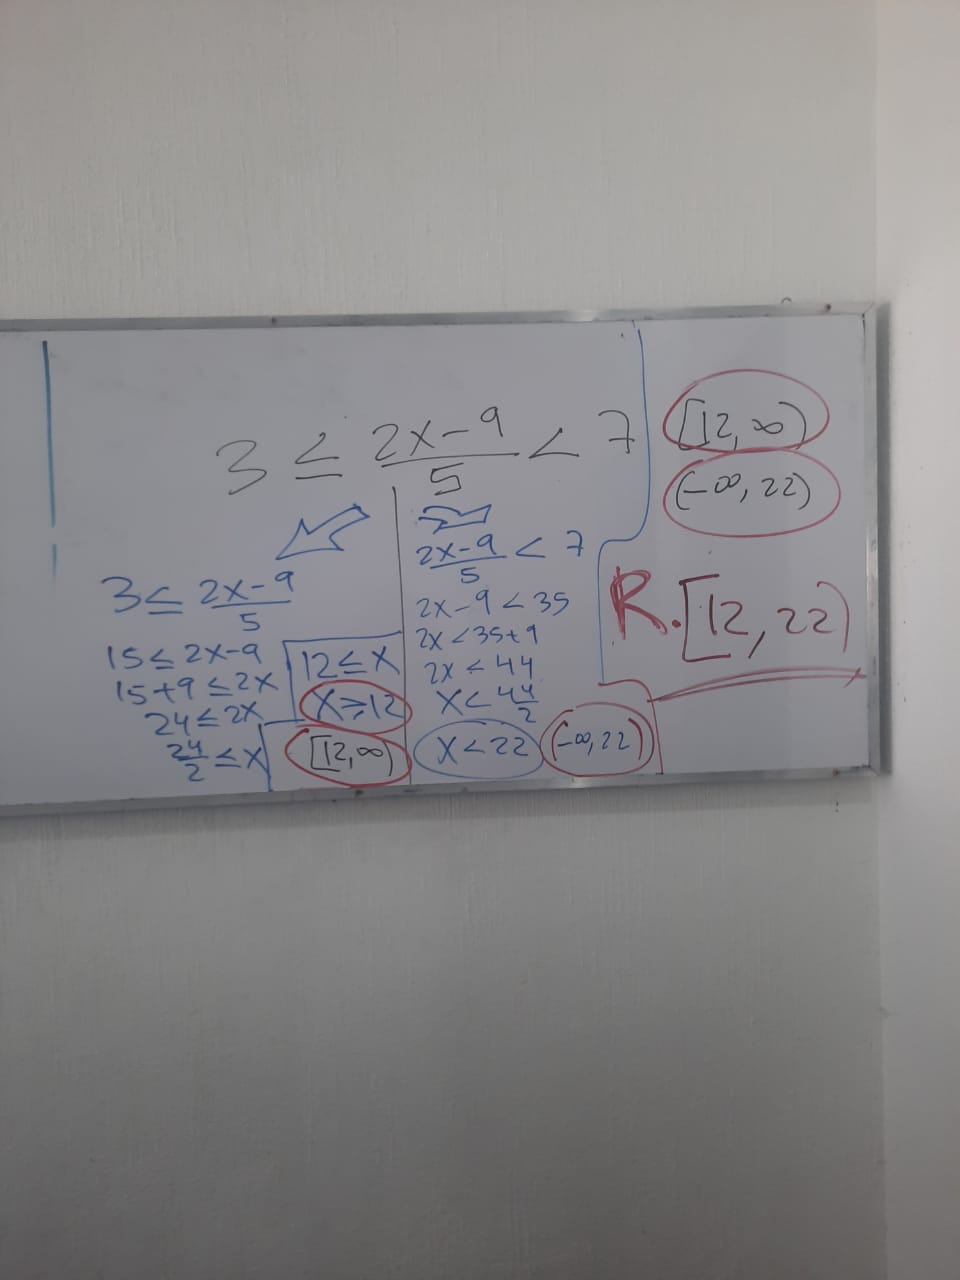 3 ≤ (2x-9)/5 < 7
3 ≤ (2x-9)/5
15 ≤ 2x-9
15+9 ≤ 2x
24 ≤ 2x
24/2 ≤ x
12 ≤ x
x ⩾ 12
[12, ∞)
(2x-9)/5 < 7
2x-9 < 35
2x < 35+9
2x < 44
x < 44/2
x < 22
(-∞, 22)
[12, ∞)
(-∞, 22)
R. [12, 22)